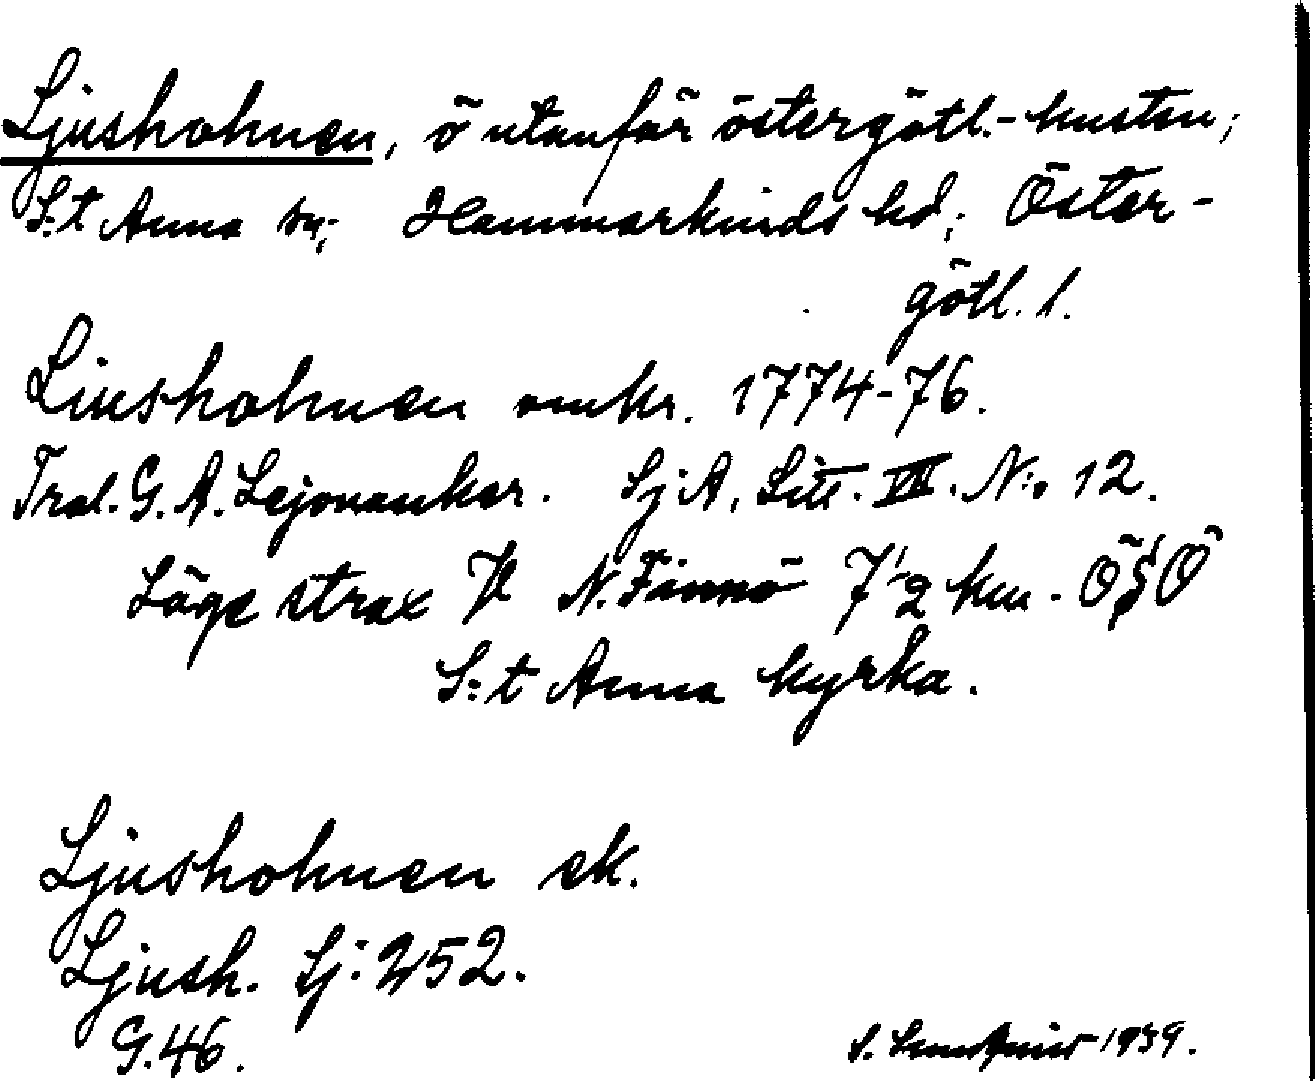 Ljusholmen, ö utanför östergötl.-kusten;
S:t Anna sn; Hammarkinds hd; Öster-
götl. l.
Liusholmen omkr. 1774-76.
Trol. G. A. Lejonanker. SjA, Litt. VII. N:o 12.
Läge strax V N. Finnö 7 1/2 km. ÖSÖ
S:t Anna kyrka.
Ljusholmen ek.
Ljush. Sj: 252.
G. 46.
S. 1939.